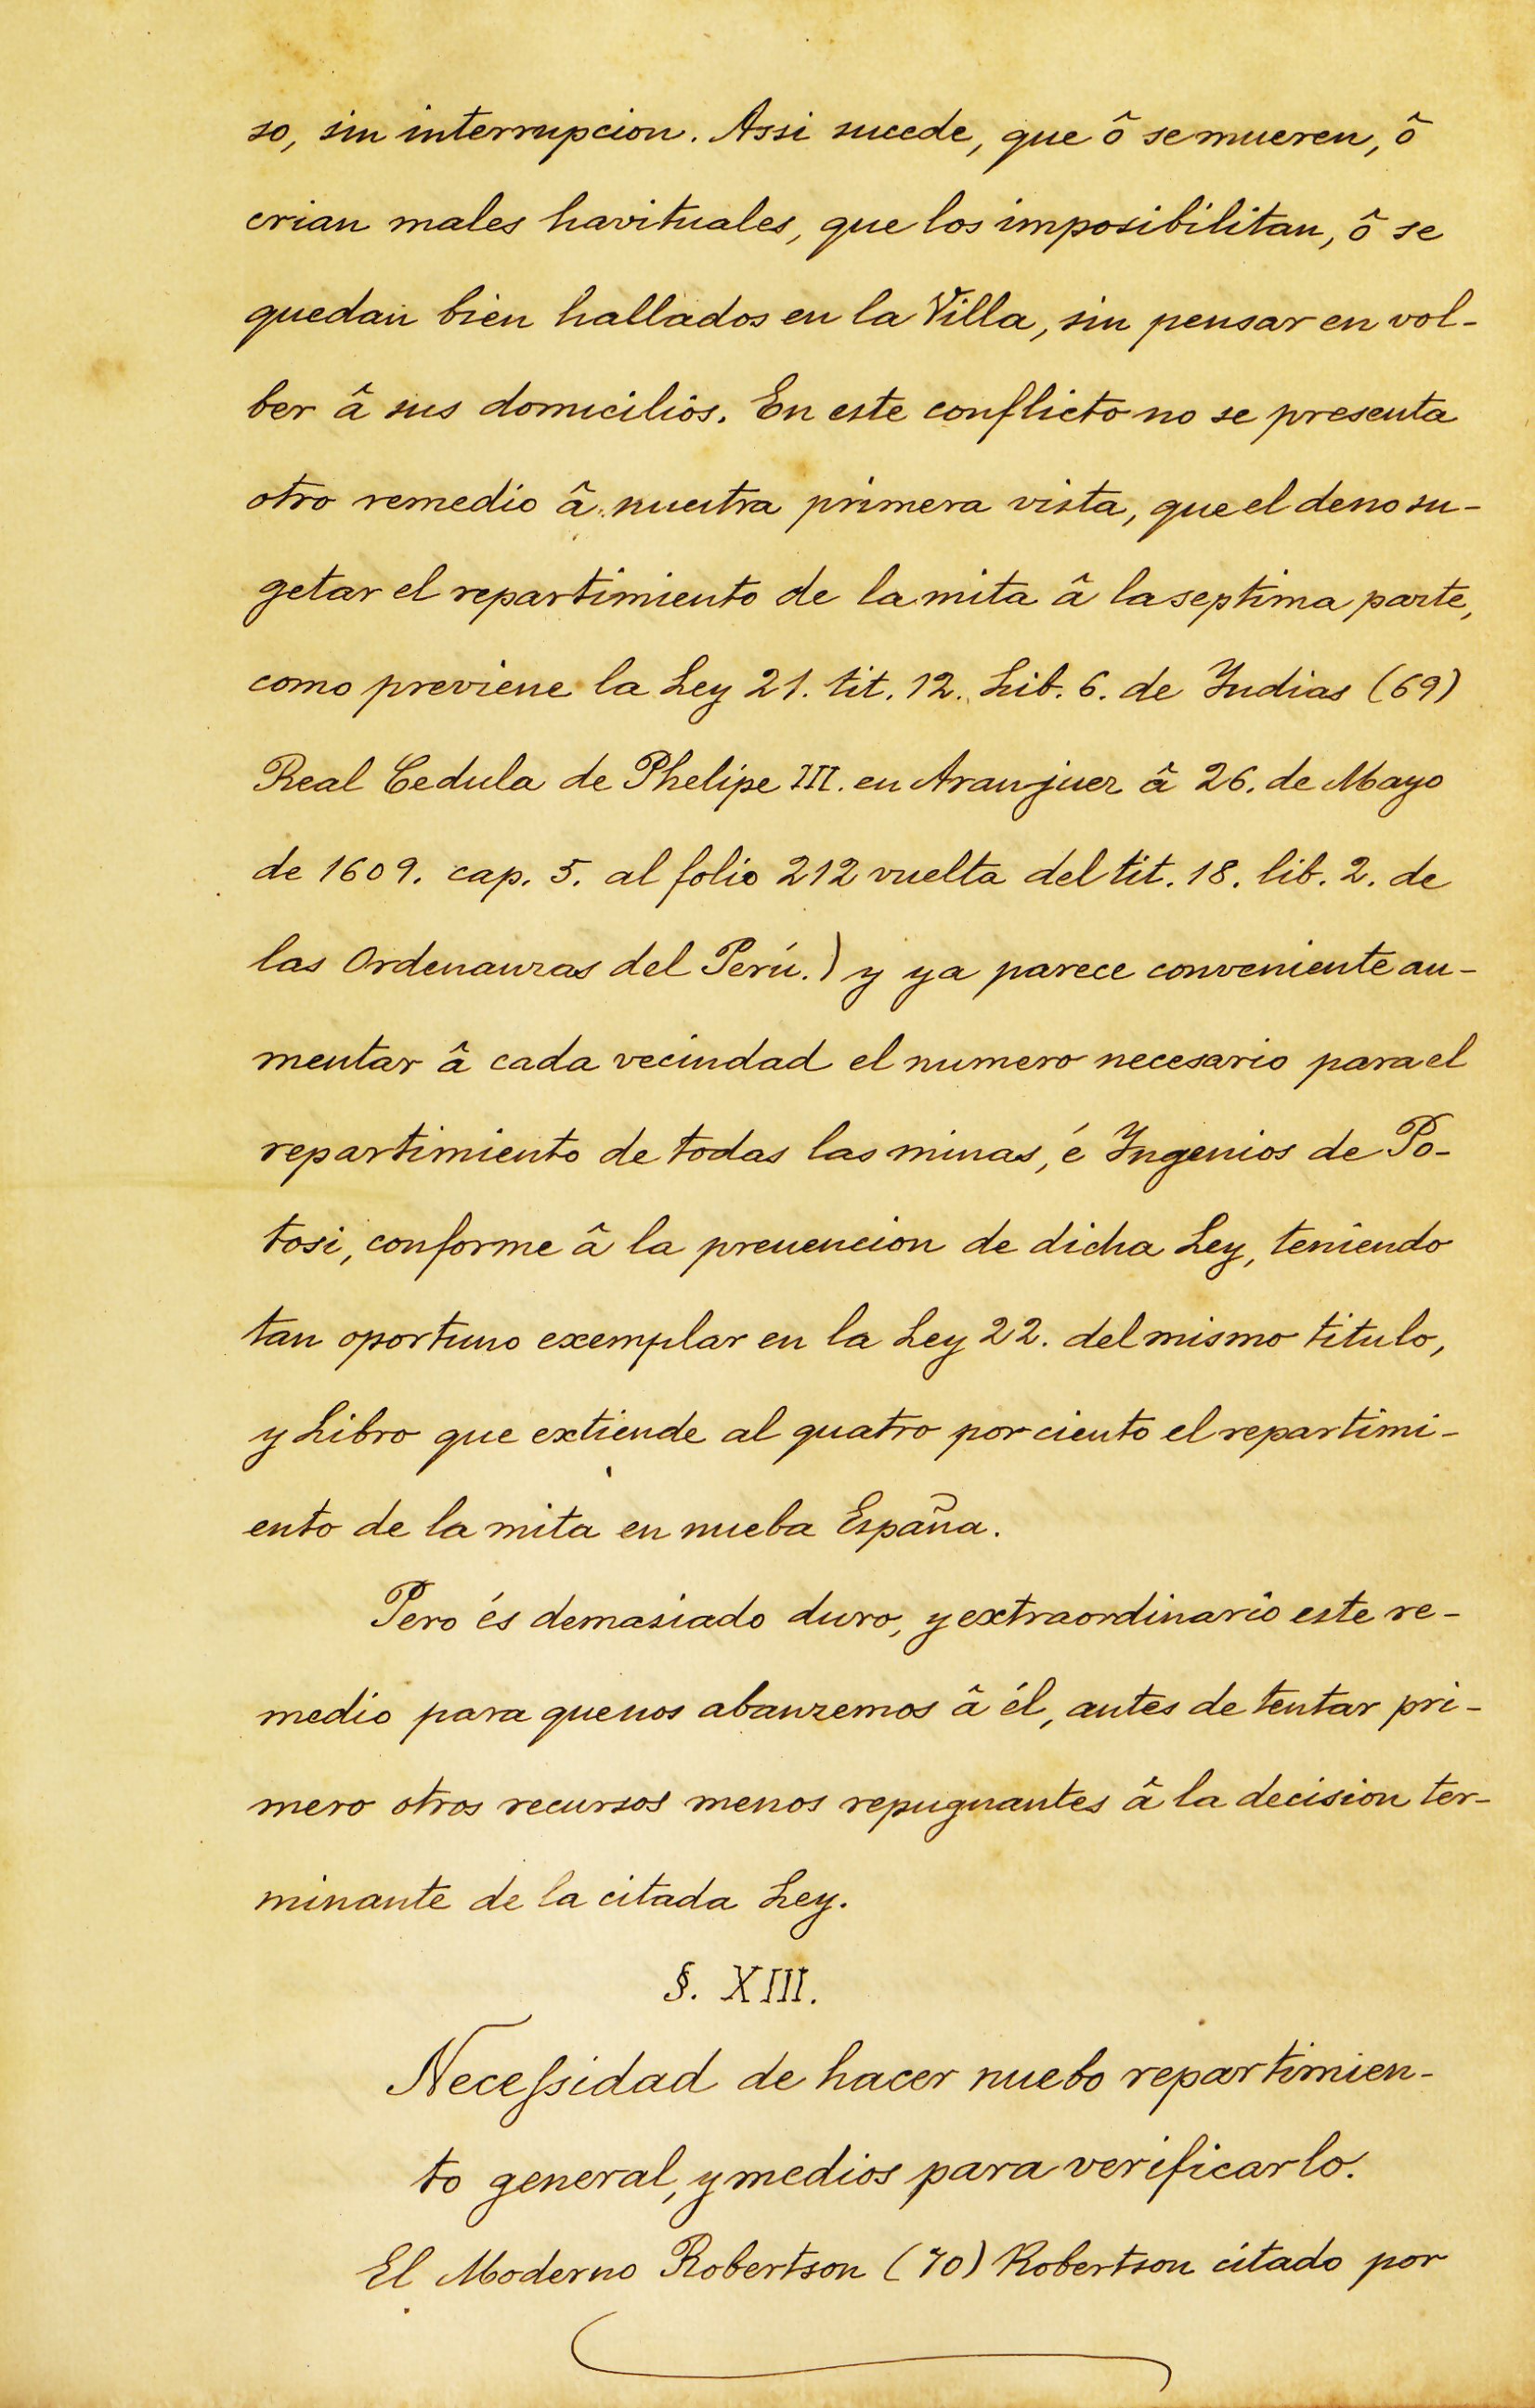 so, sin interrupcion. Assi sucede, que ô se mueren, ô
crian males havituales, que los imposibilitan, ô se
quedan bien hallados en la Villa, sin pensar en vol-
ber â sus domicilios. En este conflicto no se presenta
otro remedio â nuestra primera vista, que el de no su-
getar el repartimiento de la mita â la septima parte,
como previene la Ley 21. tit. 12. Lib. 6. de Yndias (69)
Real Cedula de Phelipe III. en Aranjuez â 26. de Mayo
de 1609. cap. 5. al folio 212 vuelta del tit. 18. lib. 2. de
las Ordenanzas del Perú.) y ya parece conveniente au-
mentar â cada vecindad el numero necesario para el
repartimiento de todas las minas, é Yngenios de Po-
tosi, conforme â la prevencion de dicha Ley, teniendo
tan oportuno exemplar en la Ley 22. del mismo titulo,
y Libro que extiende al quatro por ciento el repartimi-
ento de la mita en nueba España.
Pero és demasiado duro, y extraordinario este re-
medio para que nos abanzemos â él, antes de tentar pri-
mero otros recursos menos repugnantes â la decision ter-
minante de la citada Ley.
§. XIII.
Neceſsidad de hacer nuebo repartimien-
to general, y medios para verificarlo.
El Moderno Robertson (70) Robertson citado por